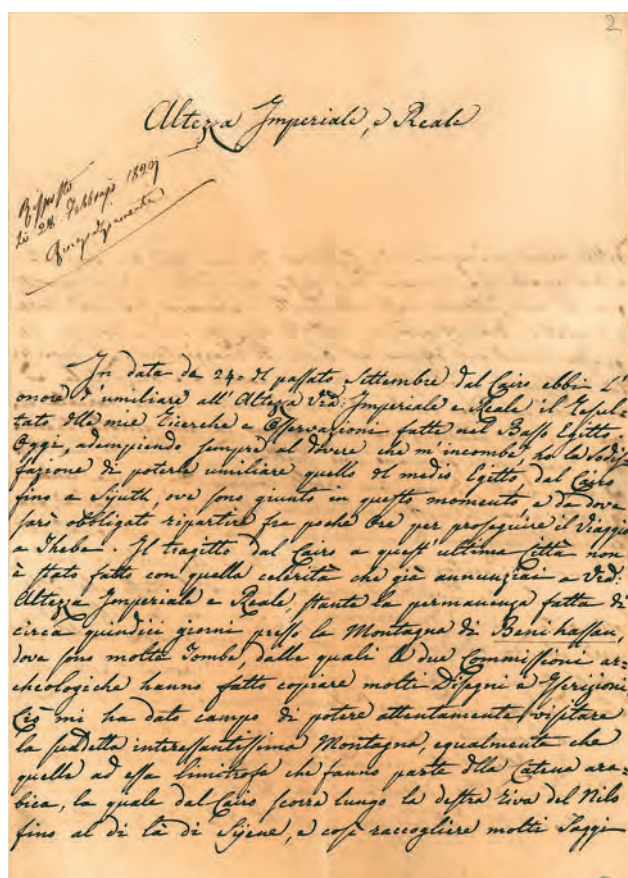 2
Altezza Imperiale, e Reale
Risposto
li 28 Febbrajo 1829
In data de 24. del passato Settembre dal Cairo ebbi l'
onore d'umiliare all'Altezza Vra: Imperiale e Reale il resul-
tato delle mie Ricerche e Osservazioni fatte nel Basso Egitto.
Oggi, adempiendo sempre al dovere che m'incombe, ho la sodis-
fazione di poterle umiliare quello del medio Egitto, dal Cairo
fino a Sijuth, ove sono giunto in questo momento, e da dove
sarò obbligato ripartire fra poche Ore per proseguire il Viaggio
a Thebe. Il tragitto dal Cairo a quest'ultima Città non
è stato fatto con quella celerità che già annunziai a Vra:
Altezza Imperiale e Reale, stante la permanenza fatta di
circa quindici giorni presso la Montagna di Benihassan,
dove sono molte Tombe, dalle quali le due Commissioni ar-
cheologiche hanno fatto copiare molti Disegni e Iscrizioni,
Ciò mi ha dato campo di potere attentamente visitare
la sudetta interessantissima Montagna, egualmente che
quelle ad essa limitrofe che fanno parte della Catena ara-
bica, la quale dal Cairo scorre lungo la destra riva del Nilo
fino al di là di Sijene, e così raccogliere molti Saggi